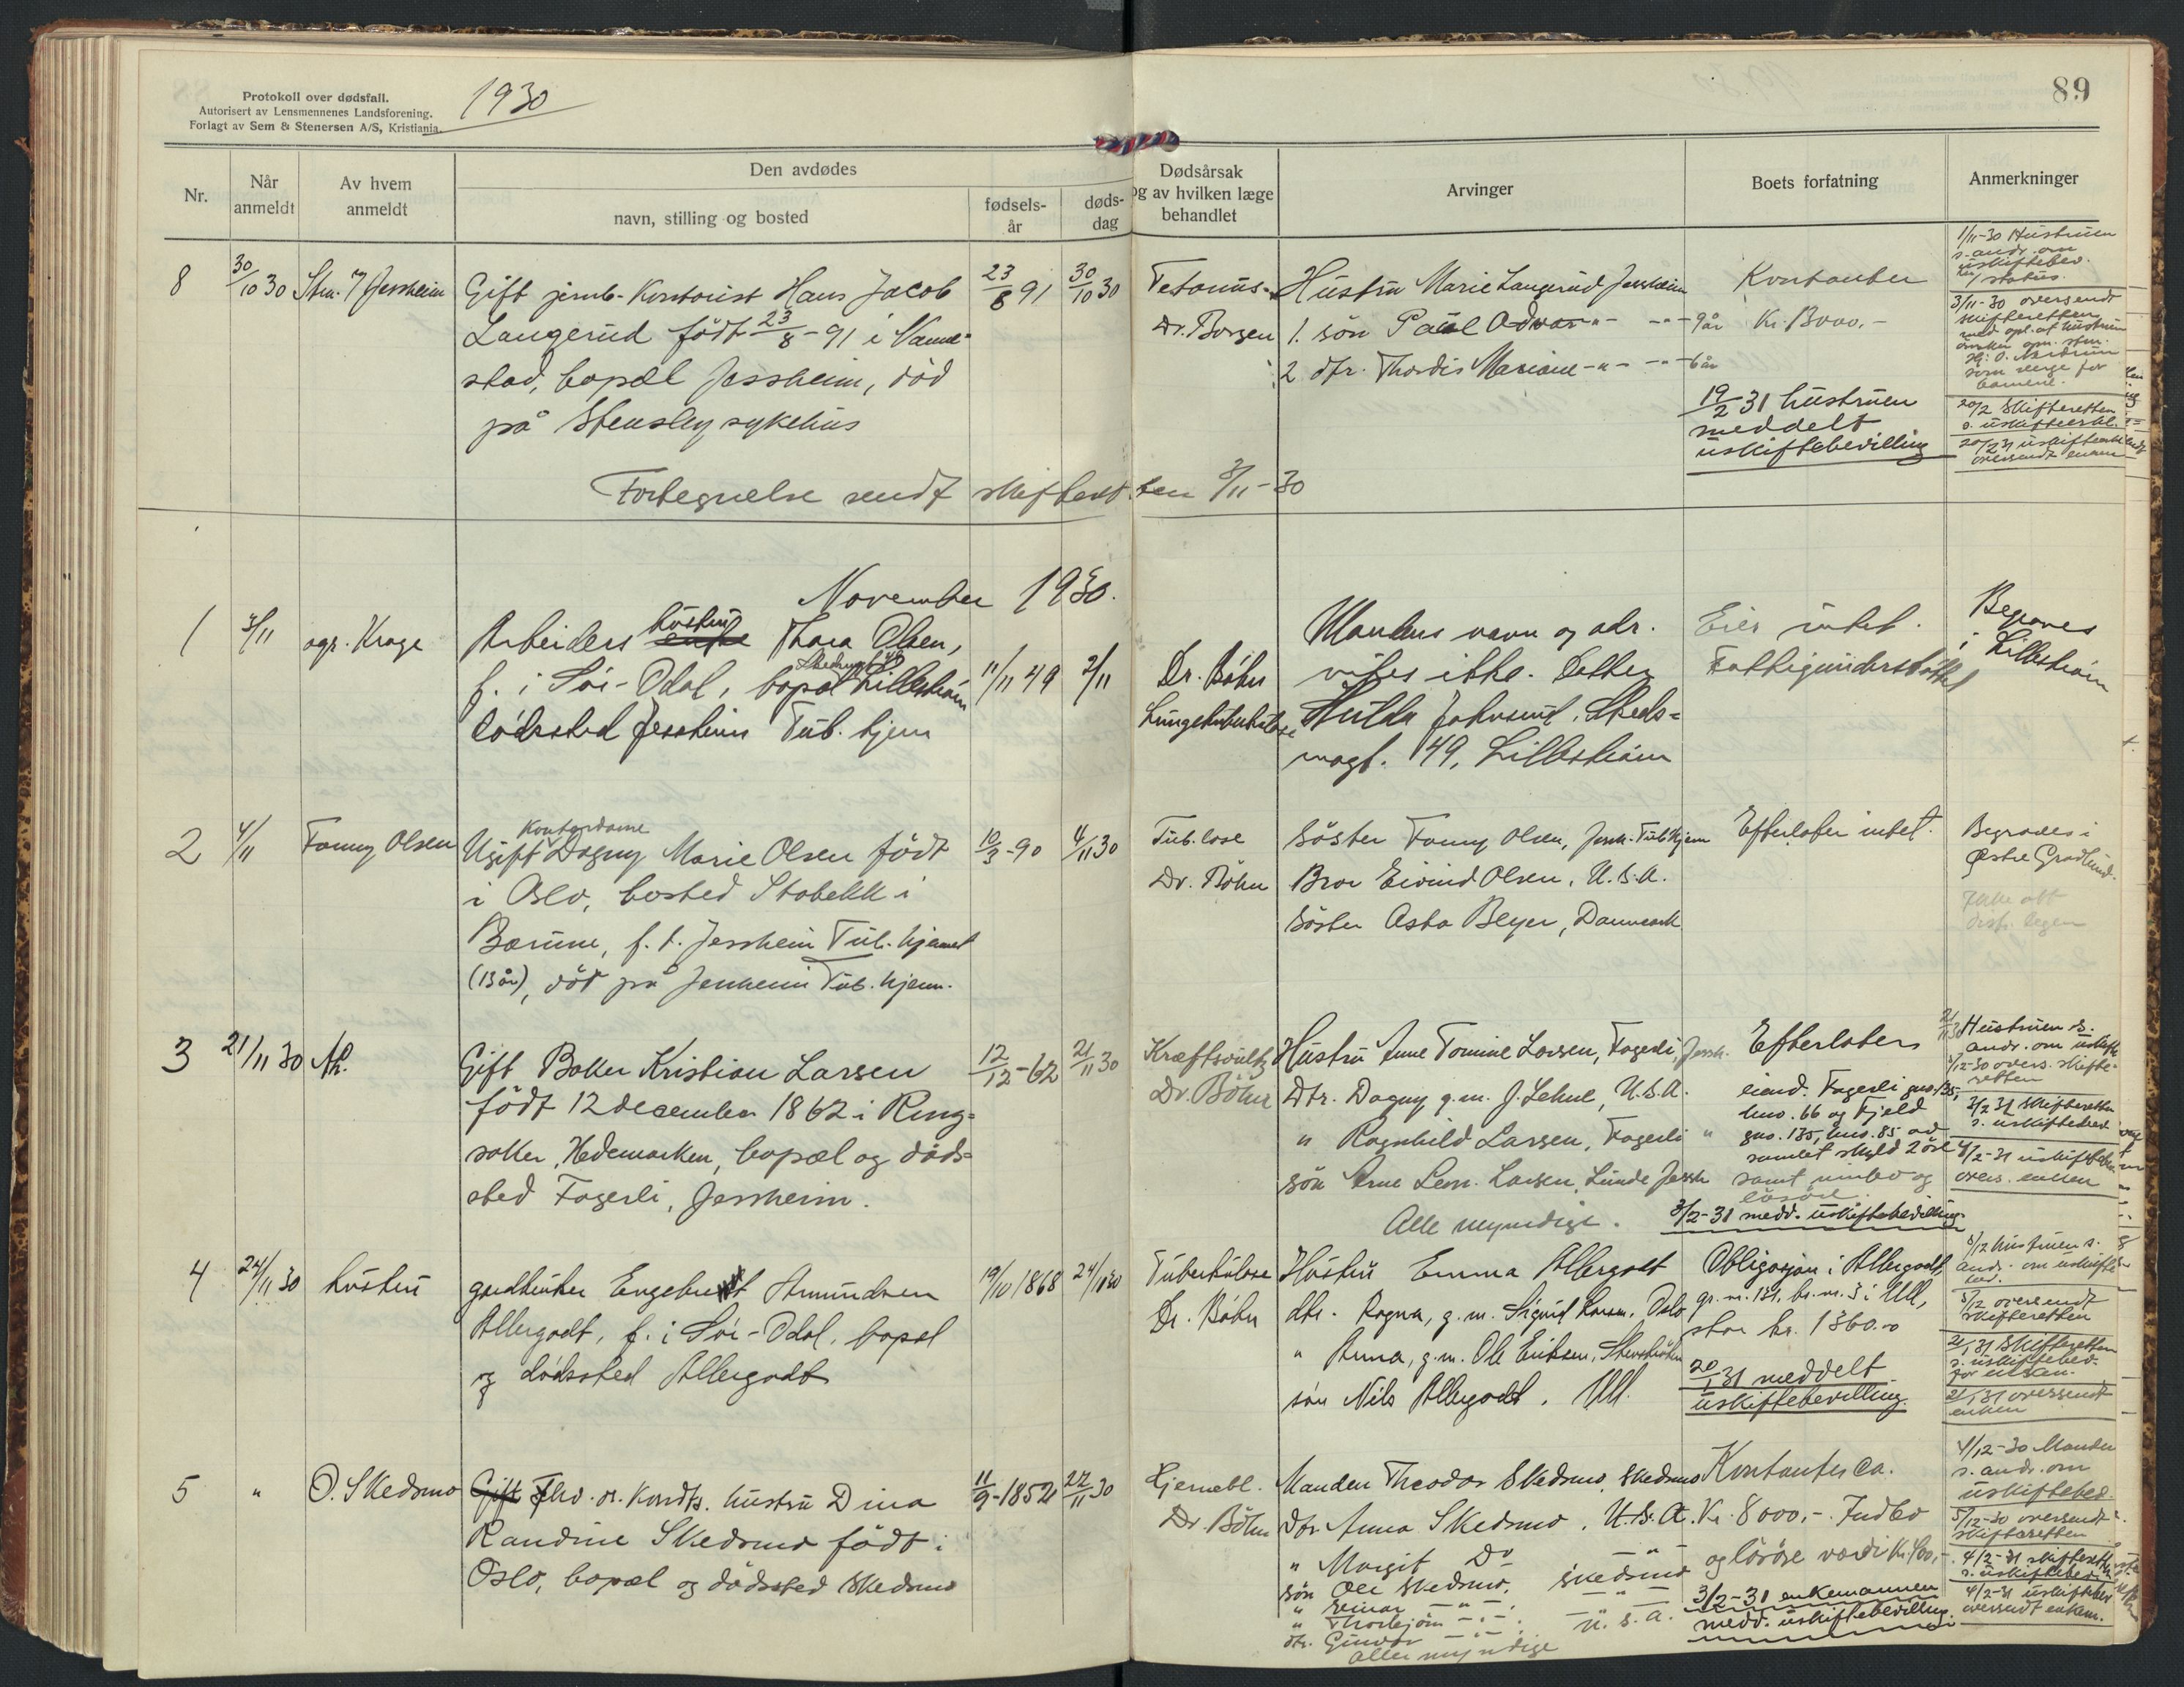 Protokoll over dødsfall.
Autorisert av Lensmennenes Landsforening.
Forlagt av Sem & Stenersen A/S, Kristiania.
1930
89
Nr.
Når anmeldt
Av hvem anmeldt
Den avdødes
navn, stilling og bosted
fødsels-år
døds-dag
Dødsårsak og av hvilken læge behandlet
Arvinger
Boets forfatning
Anmerkninger
8
30/10 30
Jessheim
Gift jernb. Kontorist Hans Jacob
Langerud född 23/8-91 i
stad, bopæl Jessheim, död
på Stensby sykehus
23/8 91
30/10 30
Tetanus
Dr. Borgen
Hustru Marie Langerud Jessheim
1. sön Paul - " - - " - 9 år
2 dtr. Thordis Mariane - " - - " - 6 år
Kontanter
Kr. 13000.-
19/2 31 hustruen
meddelt
uskiftebevilling
1/11-30 Hustruen
s. andr. om
uskiftebev.
status.
3/11-30 oversendt
skifteretten
med opl. at hustruen
ønsker opn. sten.
som verge for
barnene.
20/2 Skifteretten
s. uskifteerkl.
20/2 31 uskifteerkl.
oversendt enken
Fortegnelse sendt skifteretten 3/11-30
November 1930.
1
3/11
agr. Krage
Arbeiders hustru enke Thora Olsen,
f. i Sör-Odal, bopæl Skedsmogt 49 Lilleström
dödssted Jessheim Tub. hjem
11/11 49
2/11
Dr. Böhn
Lungetuberkulose
Mandens navn og adr.
vites ikke. Datter
Hulda Johnsrud, Skeds=
mogt. 49, Lilleström
Eier intet.
Fattigunderstöttet
Begraves
i Lilleström
2
4/11
Fanny Olsen
Ugift Kontordame Dagny Marie Olsen född
i Oslo, bosted Stabekk i
Bærum, f. t. Jessheim Tub. hjemmet
(13 år), död på Jessheim Tub. hjem.
10/3-90
4/11 30
Tub. lose
Dr. Böhn
Söster Fanny Olsen, Jessh. Tub hjem
Bror Eivind Olsen, U.S.A.
Söster Asta Beyer, Danmark
Efterlater intet.
Begraves i
Østre Gravlund.
Ikke att
distr. legen
3
21/11 30
Gift Baker Kristian Larsen
född 12 december 1862 i Ring=
saker, Hedemarken, bopæl og döds=
sted Fagerli, Jessheim.
12/12-62
21/11 30
Kræftsvulst
Dr. Böhn
Hustru Anne Tomine Larsen, Fagerli, Jessh.
Dtr. Dagny g.m. J. Lehne, U.S.A.
" Ragnhild Larsen, Fagerli "
sön Arne Leon. Larsen, Lunde Jessh
Alle myndige.
Efterlater
eiend. Fagerli gno. 135,
bno. 66 og Fjeld
gno. 135, bno. 85 av
samlet skyld 2 öre
samt innbo og
lösöre.
3/2-31 medd. uskiftebevilling.
21/11 30 Hustruen s.
andr. om uskifte
1/12-30 overs. skifte-
retten
3/2 31 Skifteretten
s. uskiftebev
4/2-31 uskiftebev.
overs. enken
4
24/11 30
hustru
gårdbruker Engebret Amundsen
Allergodt, f. i Sör-Odal, bopæl
og dödssted Allergodt
19/10 1868
24/11 30
Tuberkulose
Dr. Böhn
Hustru Emma Allergodt
dtr. Ragna, g.m. Sigurd Larsen, Oslo
" Anna, g.m. Ole Eriksen,
sön Nils Allergodt, Ull.
Obligasjon i Allergodt,
gr. nr. 131, br. nr. 3 i Ull,
stor kr. 1360.-
20/1 31 meddelt
uskiftebevilling.
5/12 hustruen s.
andr. om uskifte
bev.
5/12 oversendt
skifteretten
21/1 31 Skifteretten
s. uskiftebev.
for enken.
21/1 31 oversendt
enken
5
"
O. Skedsmo
Gift Fhv. Kondts. hustru Dina
Randine Skedsmo född i
Oslo, bopæl og dödssted Skedsmo
11/9-1852
22/11 30
Hjernebl.
Dr. Böhn
Manden Theodor Skedsmo, Skedsmo
Dtr Anna Skedsmo, U.S.A.
" Margit Do - " -
sön Ole Skedsmo, Skedsmo
" Einar - " - - " -
" Thorbjörn - " - U.S.A.
dtr. Gunvor - " -
Alle myndige
Kontanter ca.
Kr. 8000.-. Indbo
og lösöre værdi Kr. 400,-
3/2-31 enkemannen
medd. uskiftebevilling.
4/12-30 Manden
s. andr. om
uskiftebev.
5/12-30 oversendt
skifteretten
4/2-31 skifteretten
s. uskiftebev.
4/2-31 uskiftebev
oversendt enkem.